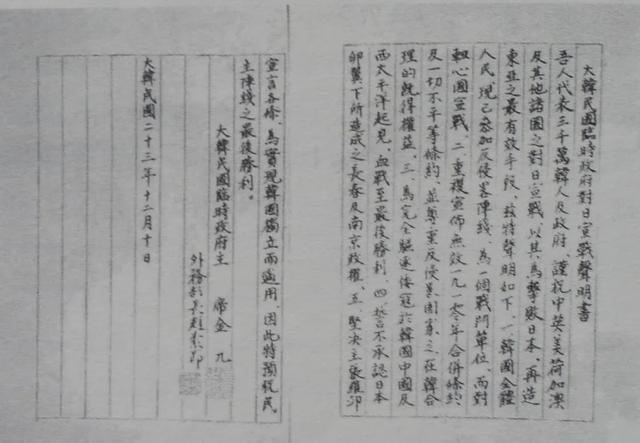 大韓民國臨時政府對日宣戰聲明書
吾人代表三千萬韓人及政府、謹祝中英美荷加澳
及其他諸國之對日宣戰、以其為擊敗日本、再造
東亞之最有效手段、玆特聲明如下、一、韓國全體
人民、現已參加反侵畧陣綫、為一個戰鬥單位、而對
軸心國宣戰、二、重複宣佈無效一九一零年合併條約
及一切不平等條約、並尊重反侵畧國家之在韓合
理的既得權益、三、為完全驅逐倭寇於韓國中國及
西太平洋起見、血戰至最後勝利、四、誓言不承認日本
卵翼下所造成之長春及南京政權、五、堅决主張羅邱
宣言各條、為實現韓國獨立而適用、因此特預祝民
主陣綫之最後勝利。
大韓民國臨時政府主 席金 九
外務部長趙素昂
大韓民國二十三年十二月十日